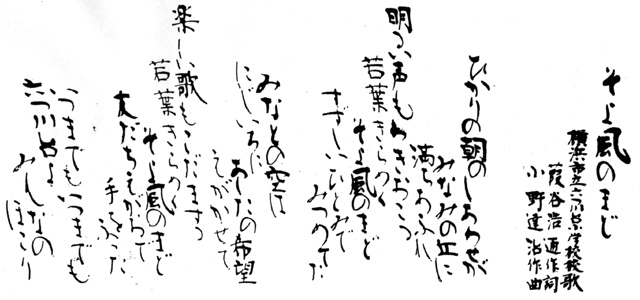 そよ風のまど
横浜市立六つ川台小学校校歌
葭谷浩通作詞
小野達治作曲
ひかりの朝のしあわせが
みなみの丘に
満ちあふれ
明るい声もわきおこる
若葉きらめく
そよ風のまど
すずしいひとみで
みつめてた
みなとの空は
にじいろだ
あしたの希望
そがかせて
楽しい歌もこだまする
若葉きらめく
そよ風のまど
友だちえがおで
手をふった
いつまでもいつまでも
六つ川台よ
みんなの
ほこり